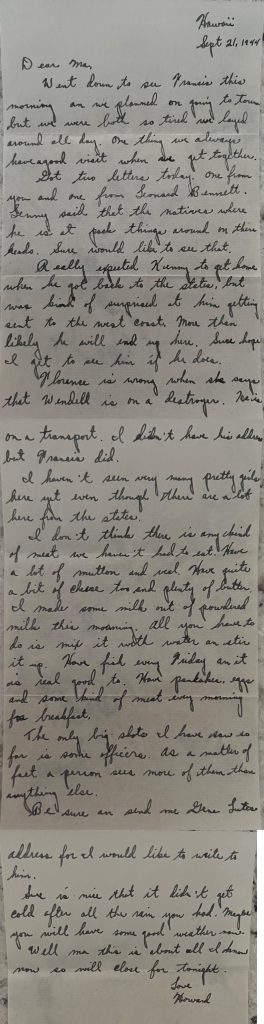 Hawaii
Sept 21, 1944
Dear Ma,
Went down to see Francis this
morning an we planned on going to town
but we were both so tired we layed
around all day. One thing we always
have a good visit when we get together.
Got two letters today. One from
you and one from Leonard Bennett.
Lenny said that the natives where
he is at pack things around on there
heads. Sure would like to see that.
Really expected Kenny to get home
when he got back to the states, but
was kind of surprised at him getting
sent to the west coast. More than
likely he will end up here. Sure hope
I get to see him if he does.
Florence is wrong when she says
that Wendell is on a destroyer. He's
on a transport. I didn't have his address
but Francis did.
I haven't seen very many pretty girls
here yet even though there are a lot
here from the states.
I don't think there is any kind
of meat we haven't had to eat. Have
a lot of mutton and veal. Have quite
a bit of cheese too and plenty of butter.
I made some milk out of powdered
milk this morning. All you have to
do is mix it with water an stir
it up. Have fish every Friday an it
is real good to. Have pancakes, eggs
and some kind of meat every morning
for breakfast.
The only big shots I have saw so
far is some officers. As a matter of
fact a person sees more of them than
anything else.
Be sure an send me Gene
address for I would like to write to
him.
Sure is nice that it didn't get
cold after all the rain you had. Maybe
you will have some good weather now.
Well ma this is about all I know
now so will close for tonight.
Love
Howard